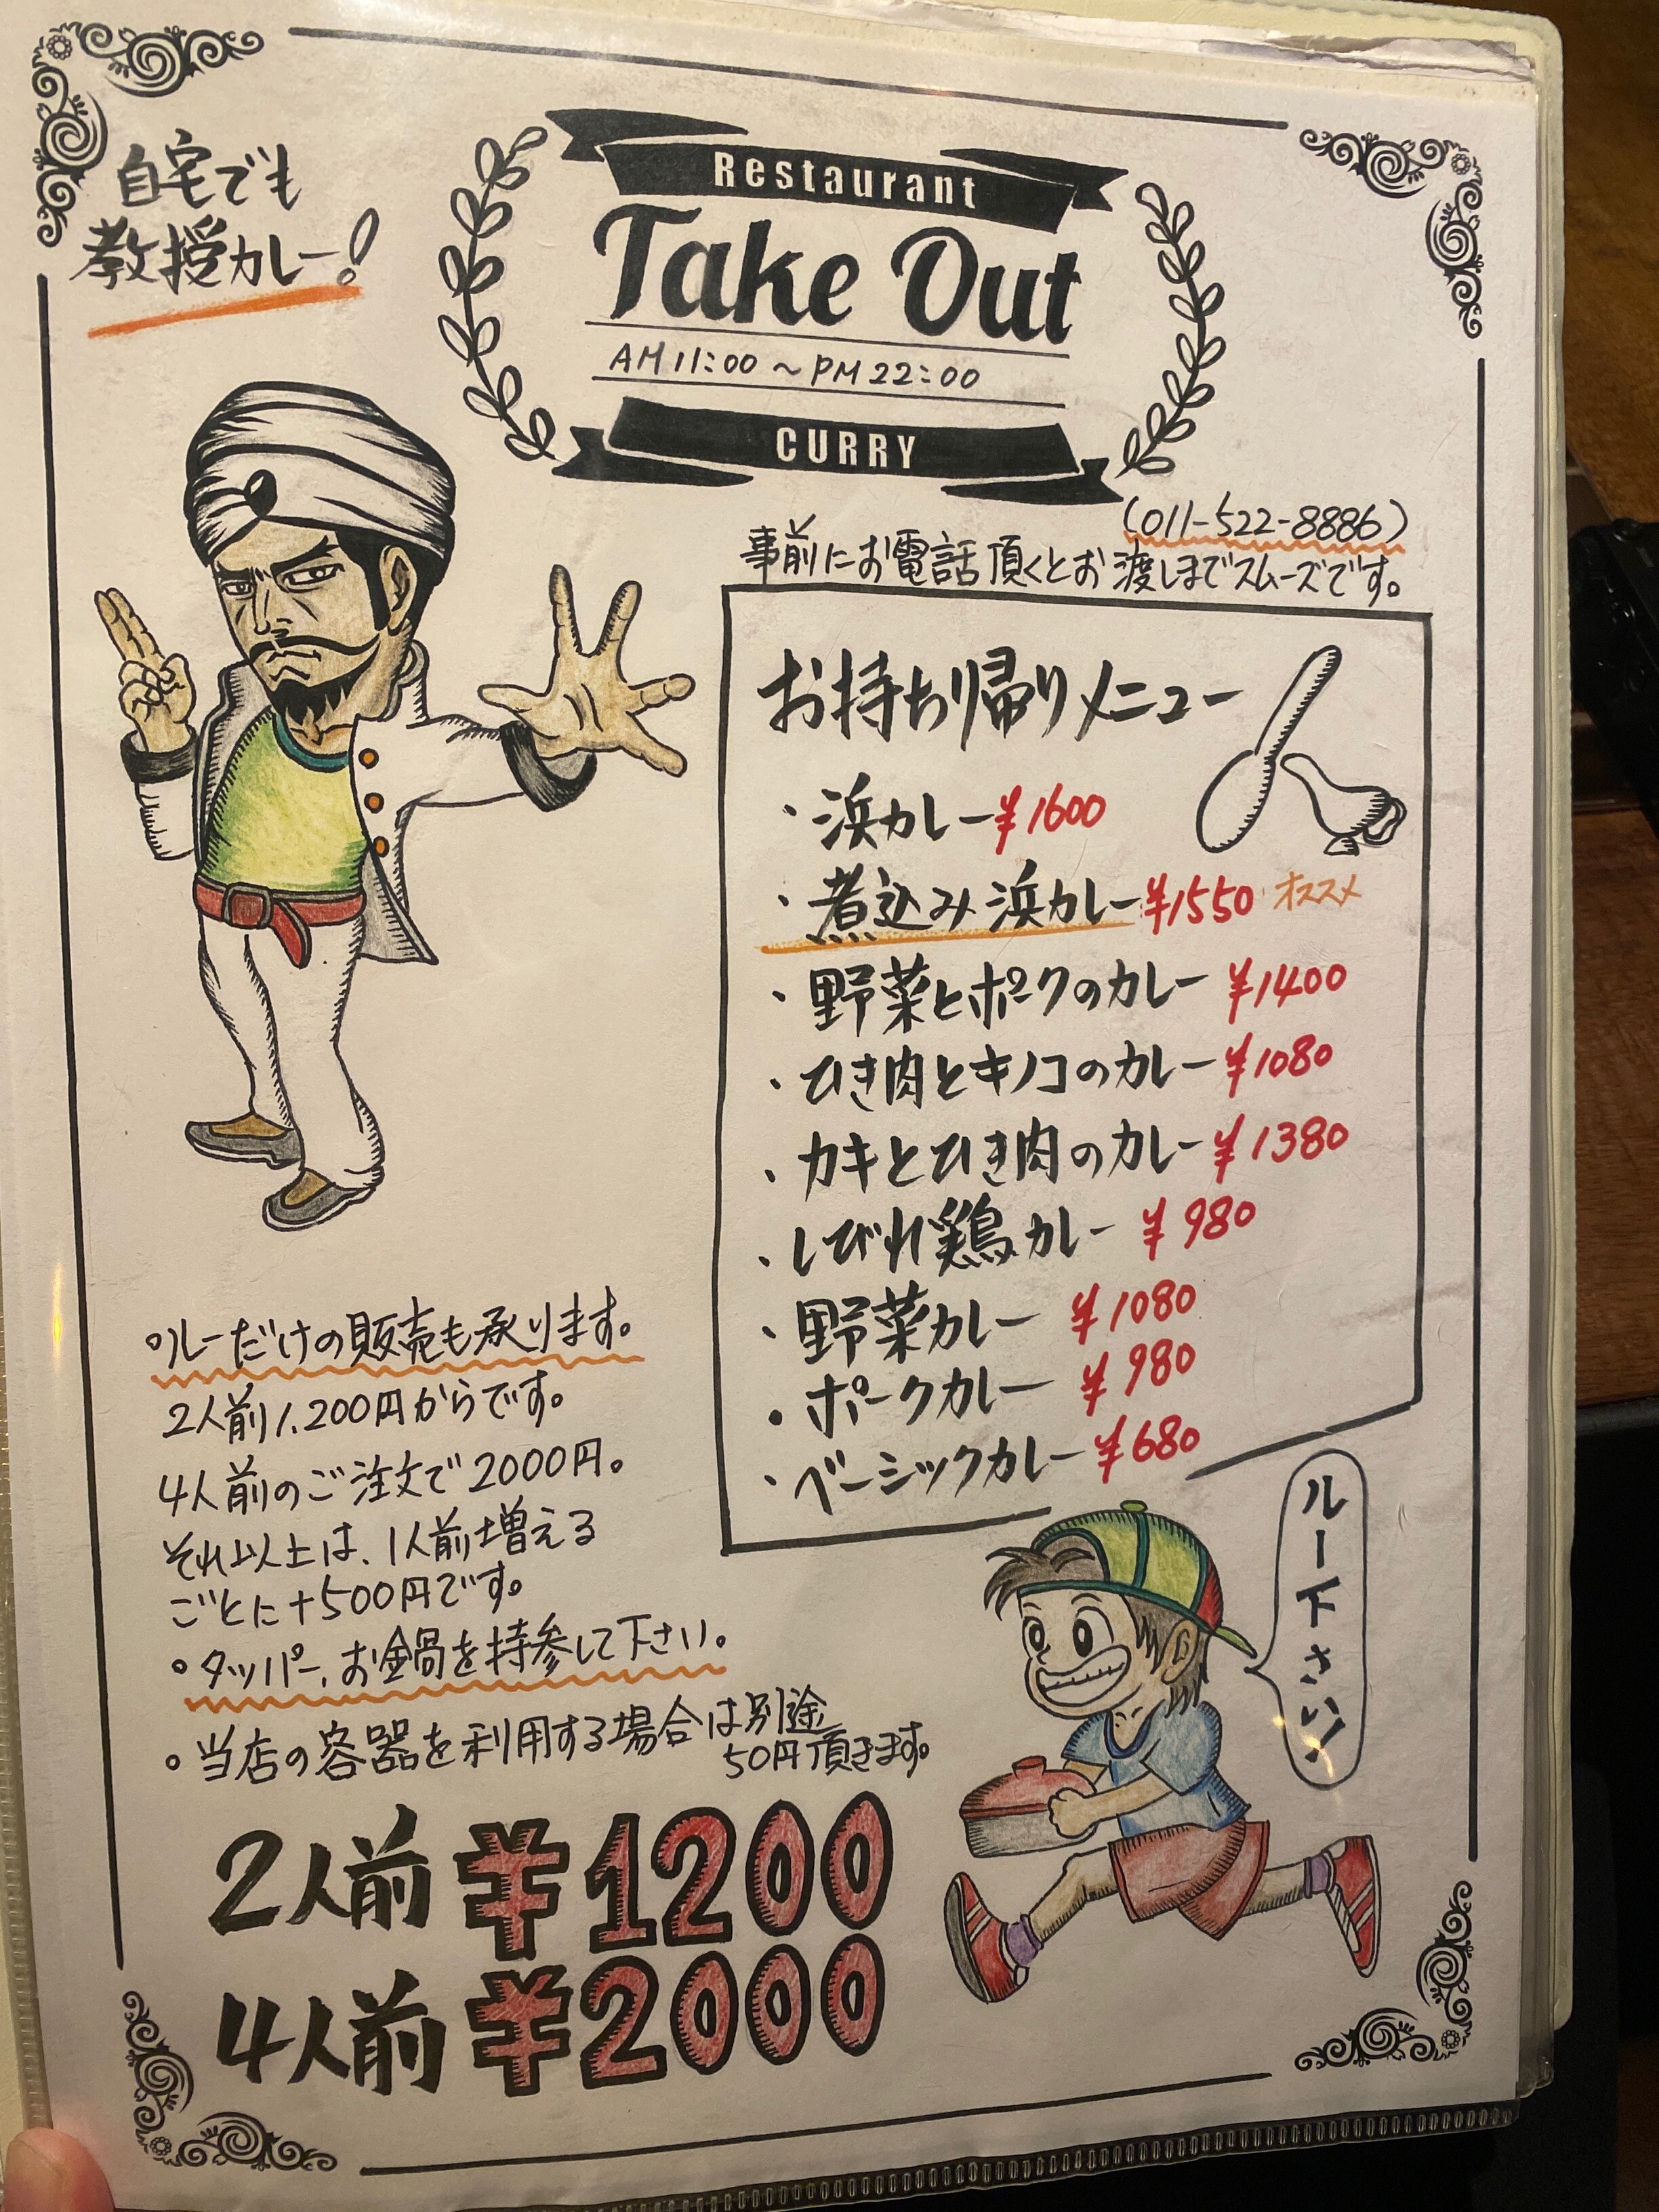 自宅でも
教授カレー!
Restaurant
Take Out
AM 11:00 ~ PM 22:00
CURRY
(011-522-8886)
事前にお電話頂くとお渡しまでスムーズです。
お持ち帰りメニュー
・浜カレー ¥1600
・煮込み浜カレー ¥1550 オススメ
・野菜とポークのカレー ¥1400
・ひき肉とキノコのカレー ¥1080
・カキとひき肉のカレー ¥1380
・しびれ鶏カレー ¥980
・野菜カレー ¥1080
・ポークカレー ¥980
・ベーシックカレー ¥680
ルー下さい!
○ルーだけの販売も承ります。
2人前1,200円からです。
4人前のご注文で2000円。
それ以上は、1人前増える
ごとに+500円です。
○タッパー、お鍋を持参して下さい。
○当店の容器を利用する場合は別途
50円頂きます。
2人前 ¥1200
4人前 ¥2000